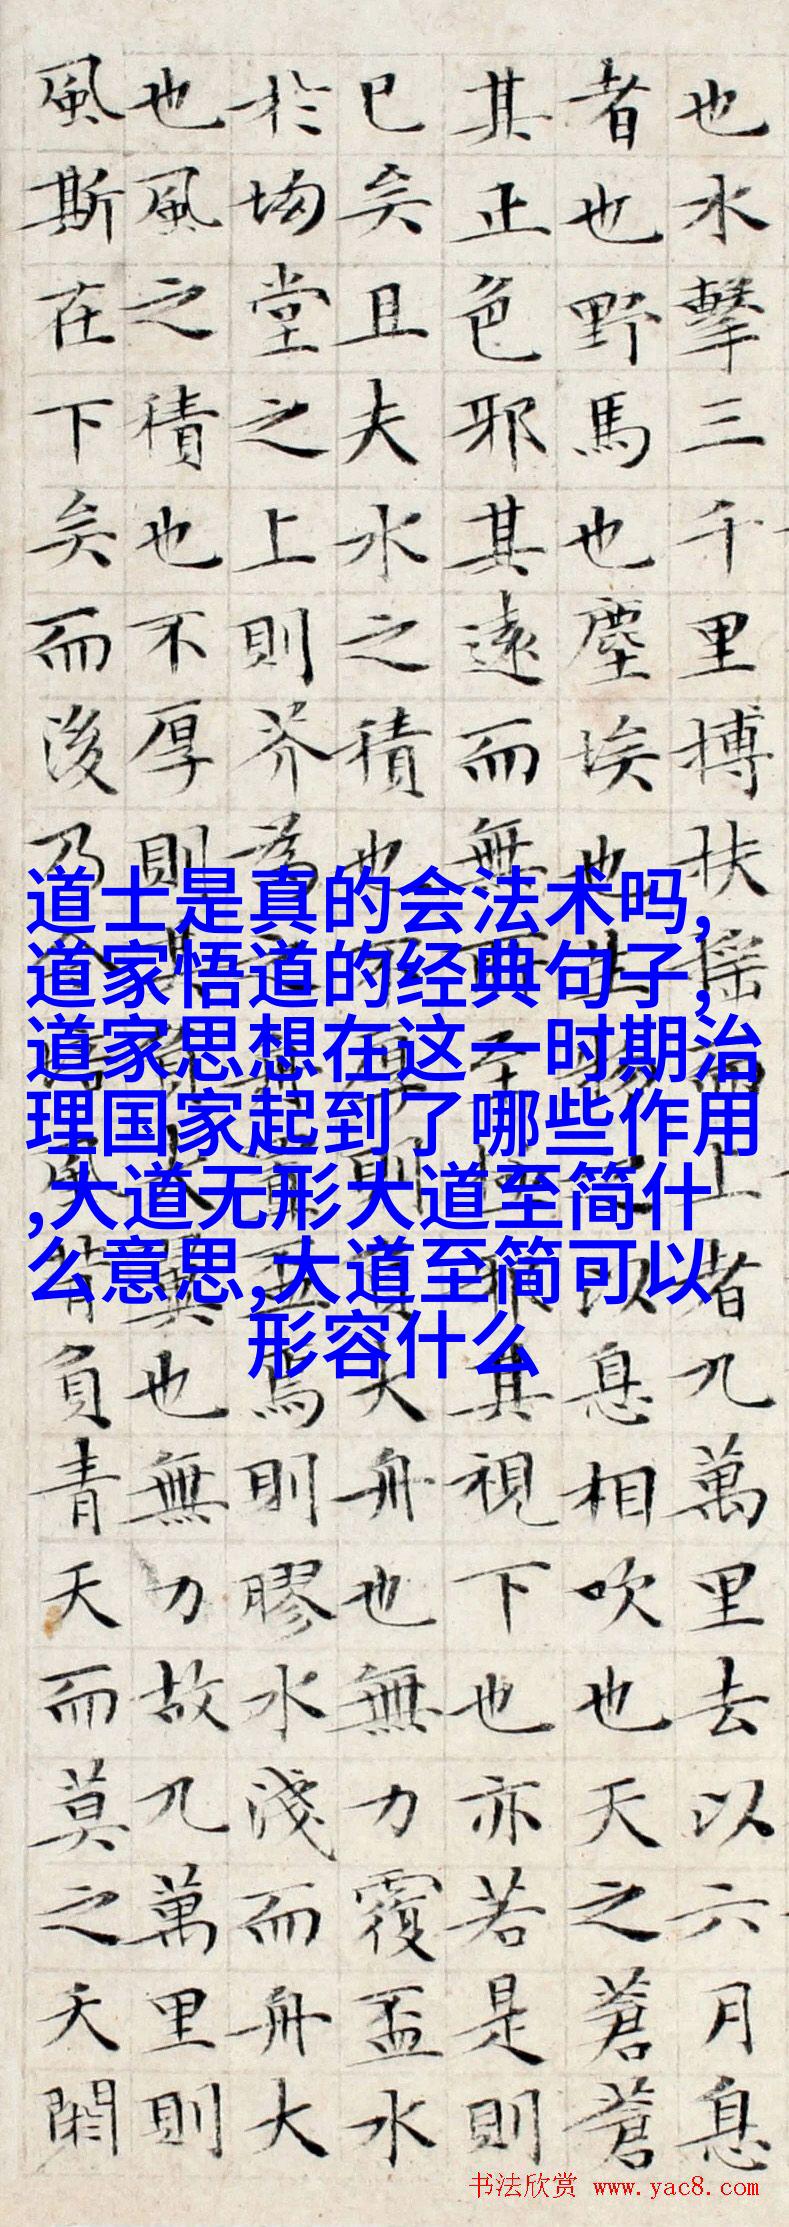 也水擊三千里搏扶摇而上者九萬里去以六月息
者也野馬也塵埃也生物之以息相吹也天之蒼蒼
其正色邪其遠而無所至極邪其視下也亦若是則
已矣且夫水之積也不厚則負大舟也無力覆盃水
於坳堂之上則芥為之舟置盃焉則膠水淺而舟大
也風之積也不厚則其負大翼也無力故九萬里則
風斯在下矣而後乃今培風背負青天而莫之夭閼
道士是真的会法术吗,
道家悟道的经典句子,
道家思想在这一时期治
理国家起到了哪些作用
,大道无形大道至简什
么意思,大道至简可以
形容什么
书法欣赏 www.yac8.com